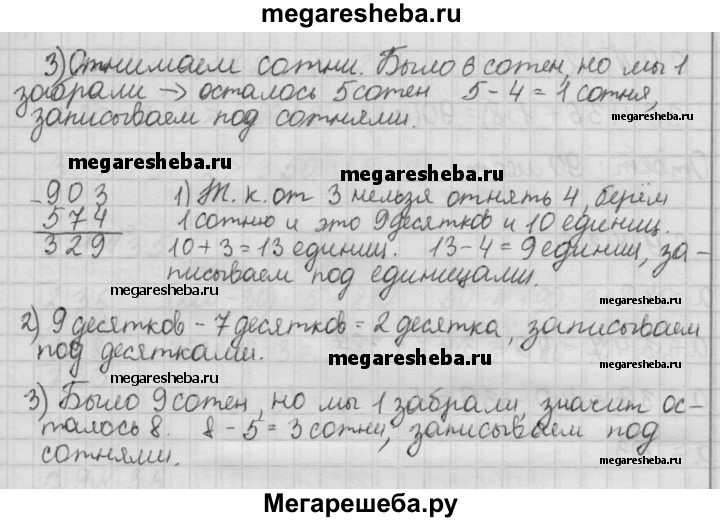 megaresheba.ru
3) Отнимаем сотни. Было 6 сотен, но мы 1
забрали → осталось 5 сотен 5 - 4 = 1 сотня,
записываем под сотнями.
megaresheba.ru
megaresheba.ru
megaresheba.ru
- 903
574
329
1) Т. к. от 3 нельзя отнять 4, берём
1 сотню и это 9 десятков и 10 единиц.
10 + 3 = 13 единиц. 13 - 4 = 9 единиц, за-
писываем под единицами.
megaresheba.ru
megaresheba.ru
2) 9 десятков - 7 десятков = 2 десятка, записываем
под десятками.
megaresheba.ru
megaresheba.ru
3) Было 9 сотен, но мы 1 забрали, значит ос-
талось 8. 8 - 5 = 3 сотни, записываем под
сотнями.
megaresheba.ru
Мегарешеба.ру